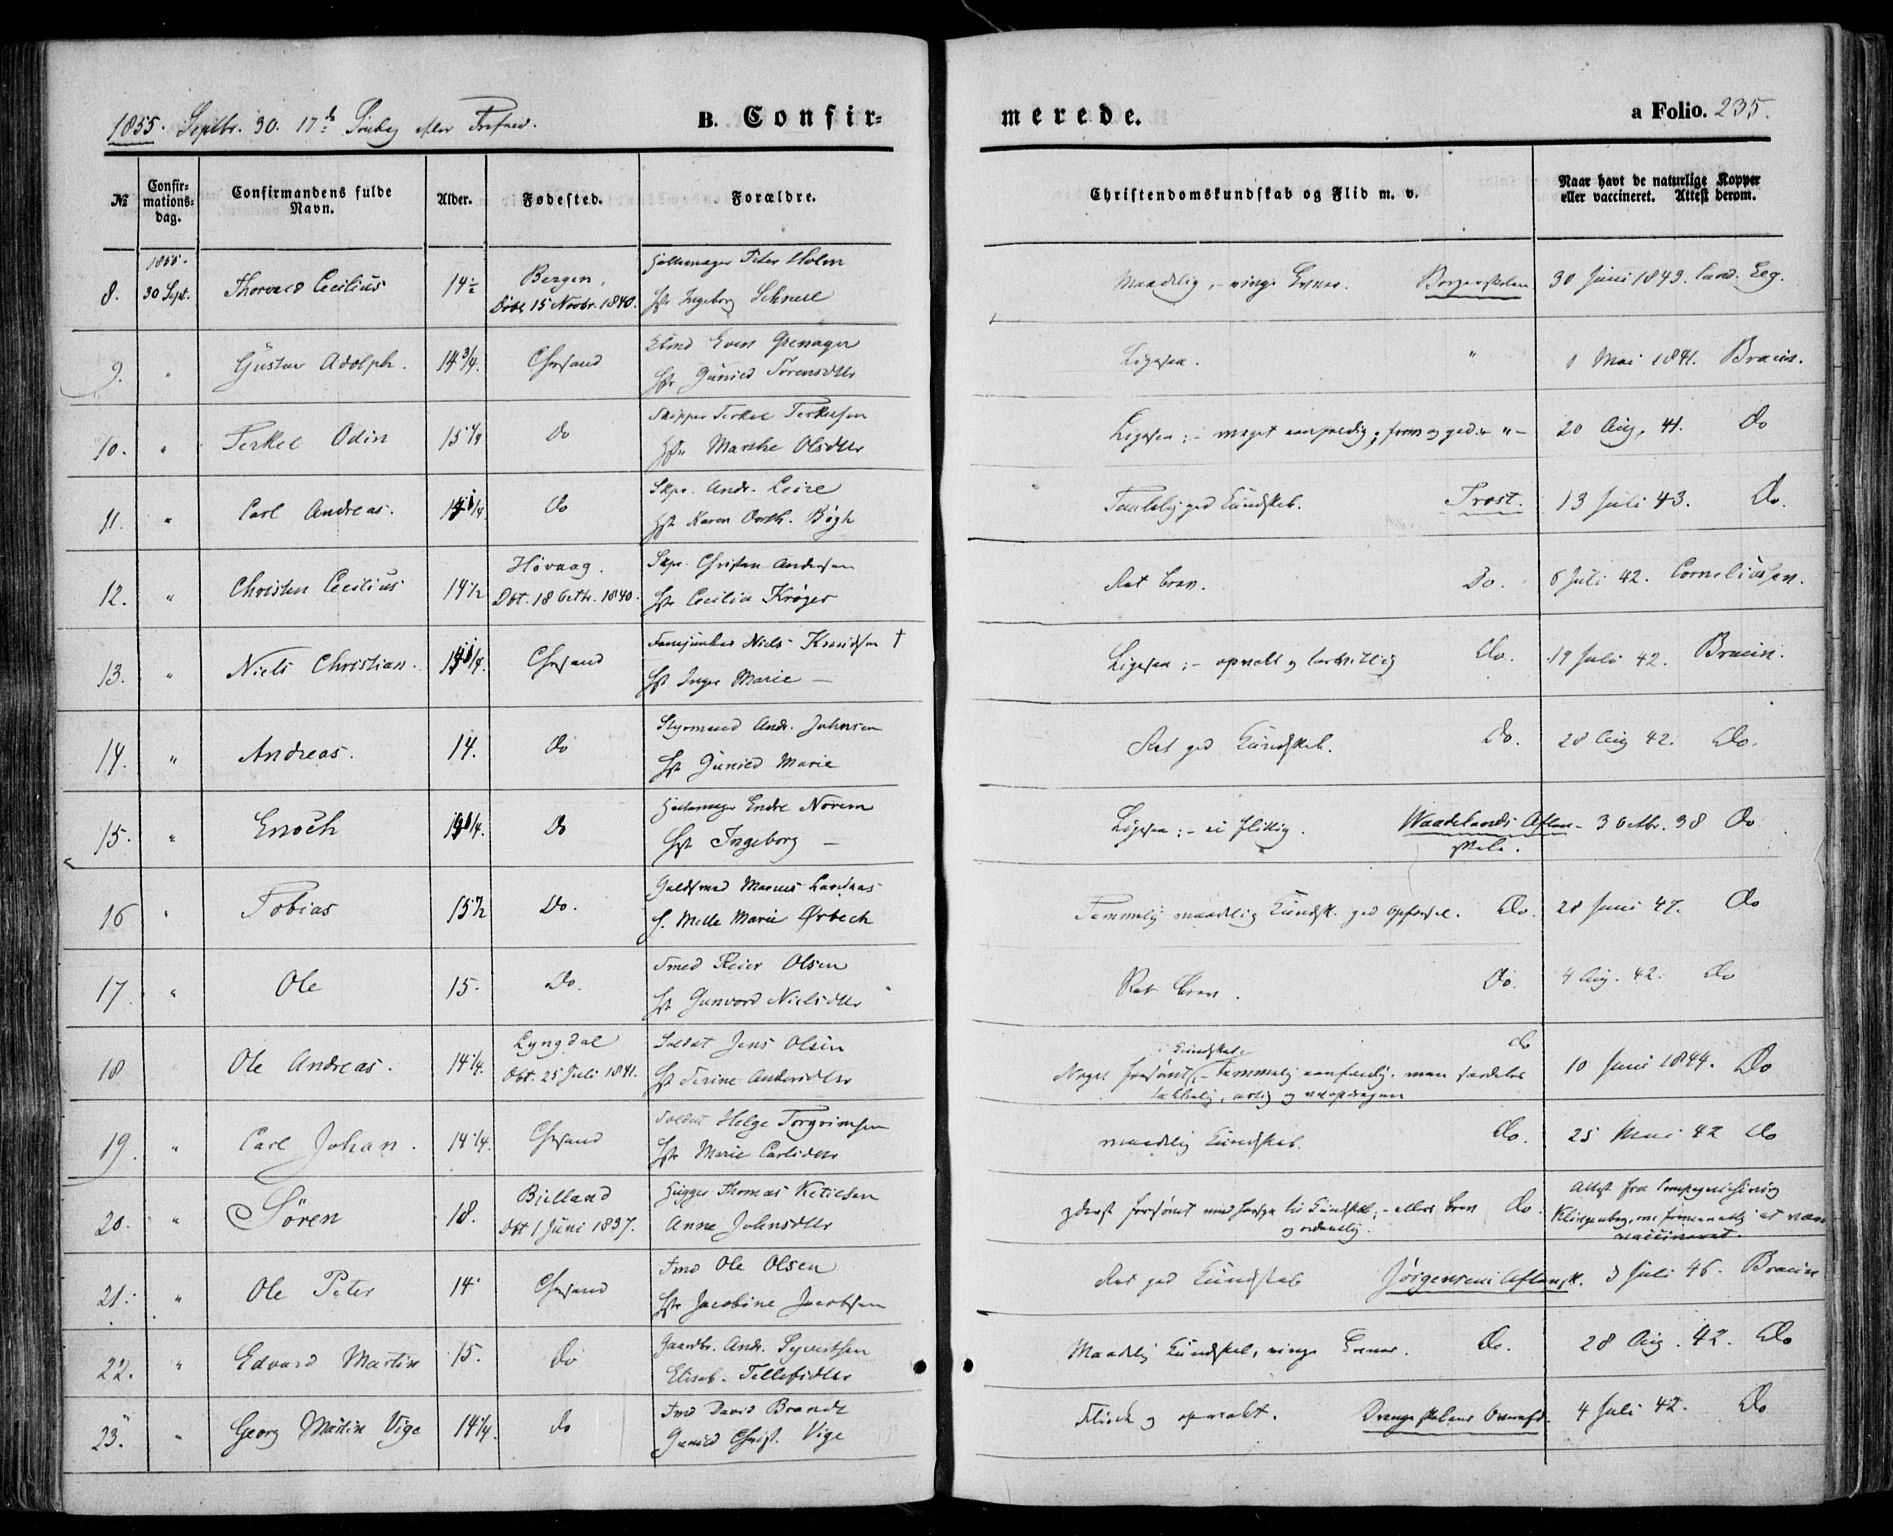 1855. Septbr. 30. 17de Søndag efter Trefned.
B. Confir-
merede.
a Folio. 235.
№
Confir-
mations-
dag.
Confirmandens fulde
Navn.
Alder.
Fødested.
Forældre.
Christendomskundskab og Flid m. v.
Naar havt de naturlige Kopper
eller vaccineret. Attest derom.
8. 1855. 30 Sept. Thorvald Cecilius 14½ Bergen,
Døbt 15 Novbr. 1840.
Peter Holm
Hst Ingeborg Schnell
Maadelig, - ringe Evner. Borgerskolen 30 Juni 1843. Cand. Eeg.
9. " Gustav Adolph. 14¾. Chrsand
Even Grenager
Hst Gunild Torensdtr
Ligesaa. " 1 Mai 1841. Bruun.
10. " Terkel Odin 15¼ do
Skipper Terkel Terkelsen
Hst Marthe Olsdtr
Ligesaa; - meget eenfoldig, from og god " 20 Aug. 41. Do
11. " Carl Andreas. 14¼ do
Skpr. Andr.
Hst Karen Doroth. Bøgh
Temmelig god Kundskab. Trost. 13 Juli 43. Do.
12. " Christen Cecilius 14½ Høvaag.
Dbt. 18 Octbr. 1840.
Skpr. Christen Andersen
Hst Cecilia Krøger
Ret brav. Do. 6 Juli 42. Corneliussen.
13. " Niels Christian. 14¼. Chrsand
Niels Knudsen †
Hst Inger Marie —
Ligesaa; - opvakt og Do. 19 Juli 42. Bruun.
14. " Andreas. 14. do
Styrmand Andr. Johnsen
Hst Gunild Marie
Ret god Kundskab. Do. 28 Aug 42. Do.
15. " Enoch do
Endre Norem
Hst Ingeborg —
Ligesaa; - ei flittig. Waadelands Aften-
skole. 3 Octbr. 38 Do
16 " Tobias 15½ Do.
Guldsmed Marcus Landaas
f. Mille Marie Ørbech
Temmelig maadelig Kundsk. god Opførsel. Do. 28 Juni 47. Do
17. " Ole 15. Do.
Smed Reier Olsen
Hst Gunvord Nielsdtr
Ret brav. Do. 4 Aug. 42. Do
18 Ole Andreas. 14¼. Lyngdal
Dbt. 25 Juli 1841.
Soldat Jens Olsen
Hst Serine Andersdtr
Kundskab
Noget forsømt, - temmelig eenfoldig, men særdeles
artig og veopdragen do 10 Juni 1844. Do
19. " Carl Johan. 14¼. Chrsand
Soldat Helge Torgrimsen
Hst Marie Carlsdtr
maadelig Kundskab. Do. 25 Mai 42 Do
20. " Sören 18. Bielland
Dbt 1 Juni 1837.
Thomas Ketilsen
Anne Johnsdtr
yderst forsømt med Hensyn til Kundskab; - ellers brav
og ordentlig. Do. Attest fra Compagnichirurg
Klingenberg, at være
vaccineret.
21. " Ole Peter 14 Chrsand
Smd Ole Olsen
Hst Jacobine Jacobsen
Ret god Kundskab Jørgensens Aftensk. 3 Juli 46. Bruun
22. " Edvard Martin 15. do
Gaardbr. Andr. Syvertsen
Elisab. Tellefsdtr
Maadelig Kundskab, ringe Evner. Do. 28 Aug. 42. Do
23. " Georg Martin Vige 14¼. do
Smd David Brandt
Gunild Christ. Vige
Flink og opvakt. Drengeskolens Overafd. 4 Juli 42. Do